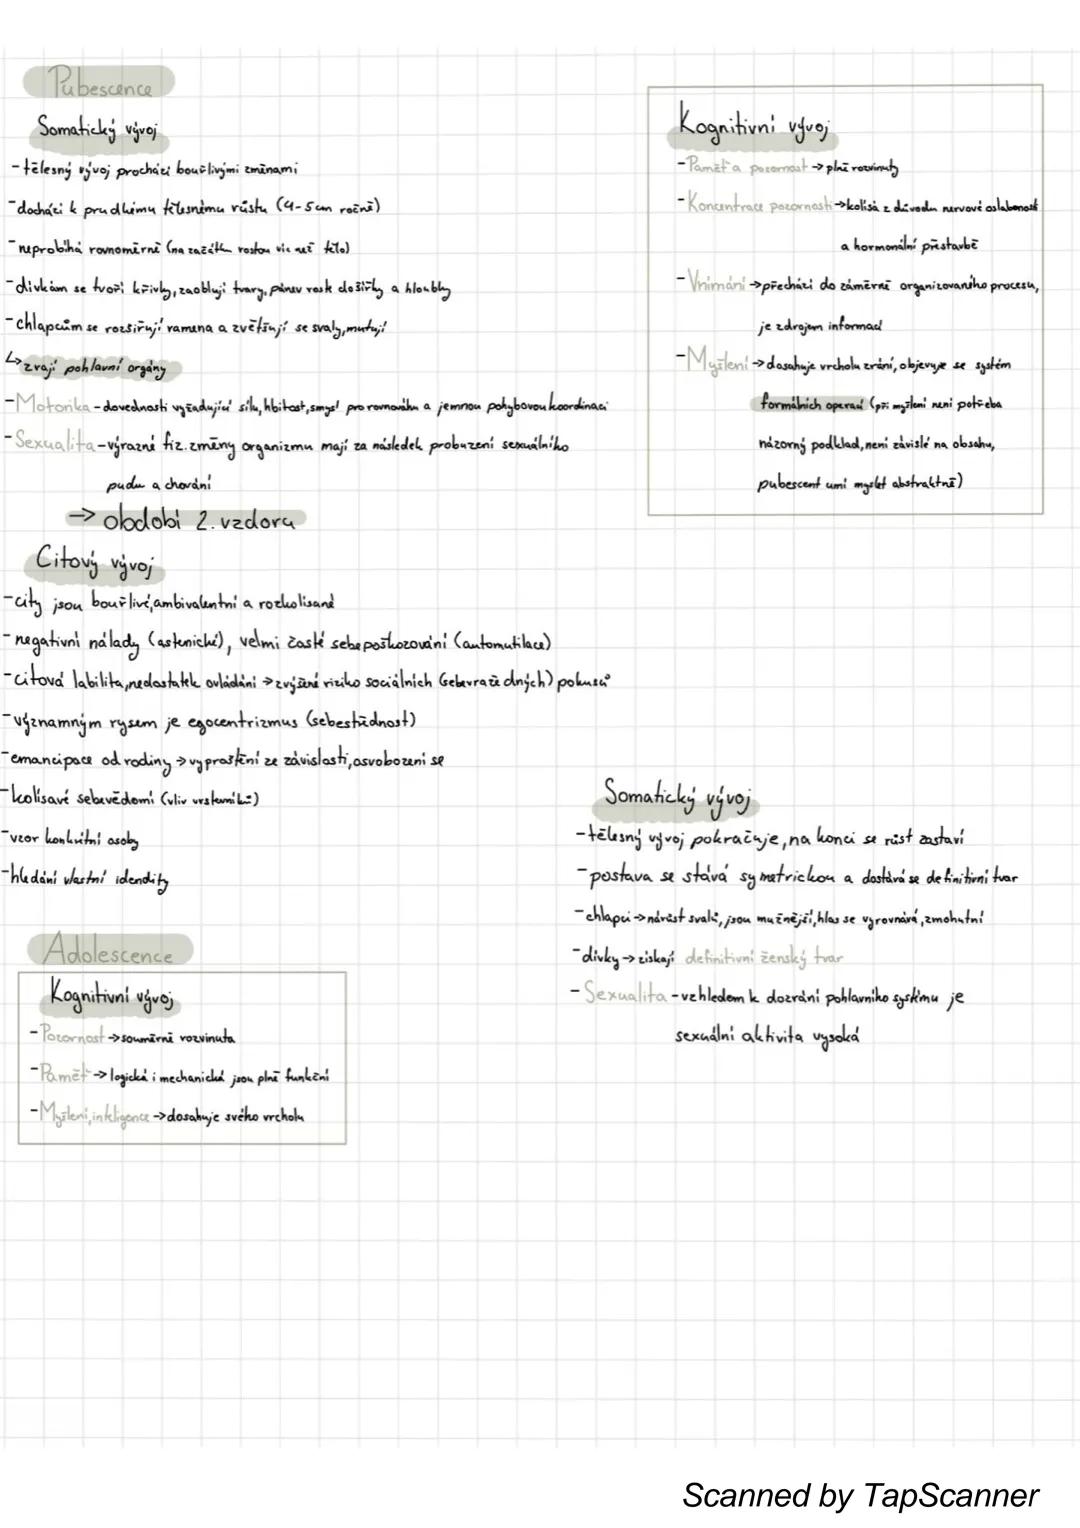 Pubescence
Somatický vývoj
-tělesný vývoj prochází bouřlivými změnami
-dochází k prudkému tělesnému růstu (4-5cm ročně)
-neprobíhá rovnoměrně (na začátku rostou víc než tělo)
-dívkám se tvoří křivky, zaoblují tvary, pánev roste do šířky a hloubky
-chlapcům se rozšiřují ramena a zvětšují se svaly, mutují
↳zrají pohlavní orgány
-Motorika-dovednosti vyžadující sílu, hbitost, smysl pro rovnováhu a jemnou pohybovou koordinaci
-Sexualita-výrazné fiz. změny organizmu mají za následek probuzení sexuálního
pudu a chování
→ období 2. vzdoru
Citový vývoj
-city jsou bouřlivé, ambivalentní a rozkolísané
-negativní nálady (astenické), velmi časté sebepoškozování (automutilace)
-citová labilita, nedostatek ovládání →zvýšené riziko sociálních (sebevražedných) pokusů
-významným rysem je egocentrizmus (sebestřednost)
-emancipace od rodiny → vyproštění ze závislosti, osvobození se
-kolísavé sebevědomí (vliv vrstevníků)
-vzor konkrétní osoby
-hledání vlastní idendity
Kognitivní vývoj
-Paměť a pozornost → plně rozvinuty
-Koncentrace pozornosti→kolísá z důvodu nervové oslabenosti
a hormonální přestavbě
-Vnímání →přechází do záměrně organizovaného procesu,
je zdrojem informací
-Myšlení →dosahuje vrcholu zrání, objevuje se systém
formálních operací (při myšlení není potřeba
názorný podklad, není závislé na obsahu,
pubescent umí myslet abstraktně)
Adolescence
Kognitivní vývoj
-Pozornost →souměrně rozvinuta
-Paměť → logická i mechanická jsou plně funkční
-Myšlení, inteligence →dosahuje svého vrcholu
Somatický vývoj
-tělesný vývoj pokračuje, na konci se růst zastaví
-postava se stává symetrickou a dostává se definitivní tvar
-chlapci→nárůst svalů, jsou mužnější, hlas se vyrovnává, zmohutní
-dívky→ získají definitivní ženský tvar
-Sexualita-vzhledem k dozrání pohlavního systému je
sexuální aktivita vysoká
Scanned by TapScanner